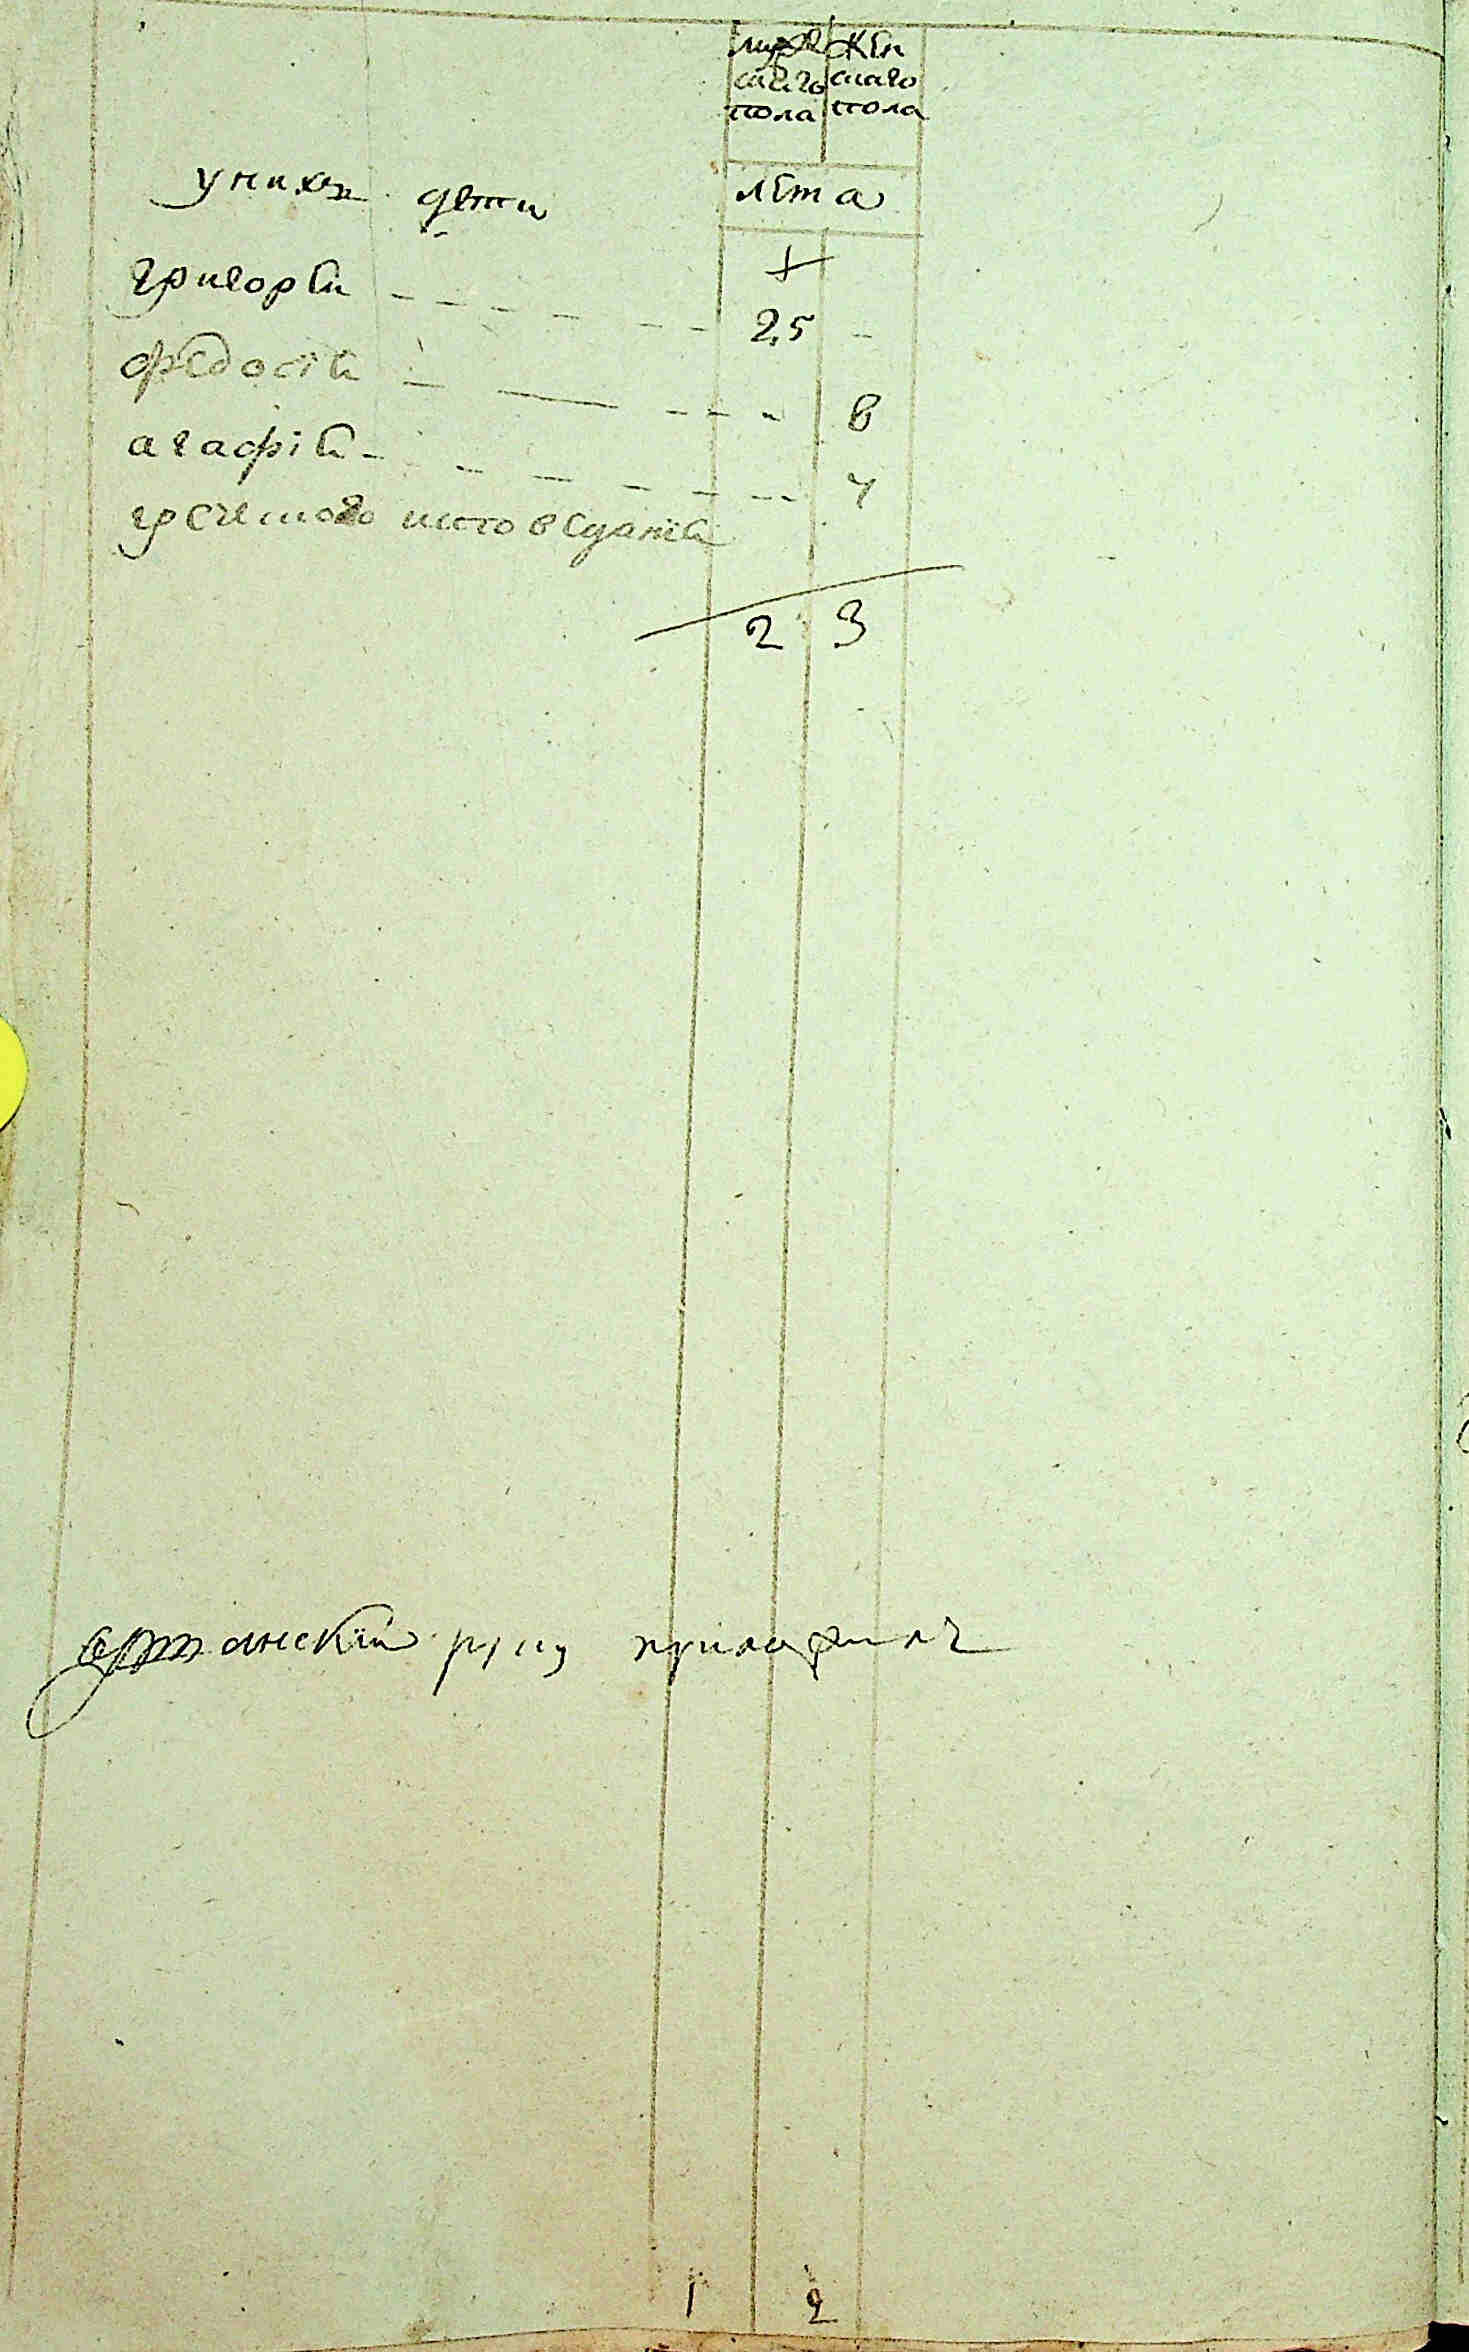 муже жен
скаго скаго
пола пола
унихъ дети лета
+
григореи 2,5
федосiя 8
агафiя 4
греческого исповеданiя
2 3
руку приложилъ
1 2